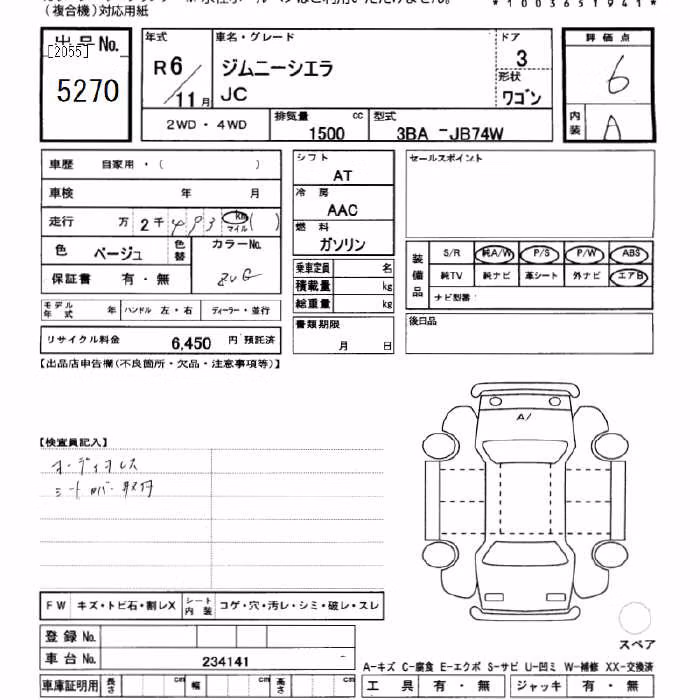 (複合機)対応用紙
*1003651941*
出品No.
[2055]
5270
年式
R6/11月
車名・グレード
ジムニーシエラ
JC
ドア
3
形状
ワゴン
2WD・4WD
排気量 cc
1500
型式
3BA -JB74W
評価点
6
内装
A
車歴 自家用・( )
車検 年 月
走行 万 2千 493 km マイル ( )
色 ベージュ 色替
カラーNo.
ZVG
保証書 有・無
モデル年式 年 ハンドル 左・右 ディーラー・並行
リサイクル料金 6,450 円 預託済
シフト
AT
冷房
AAC
燃料
ガソリン
乗車定員 名
積載量 kg
総重量 kg
書類期限
月 日
セールスポイント
装備品
S/R 純A/W P/S P/W ABS
純TV 純ナビ 革シート 外ナビ エアB
ナビ型番
後日品
【出品店申告欄(不良箇所・欠品・注意事項等)】
【検査員記入】
オーディオレス
シートカバー取付
A1
スペア
FW キズ・トビ石・割レX シート内装 コゲ・穴・汚レ・シミ・破レ・スレ
登録No.
車台No. 234141
A-キズ C-腐食 E-エクボ S-サビ U-凹ミ W-補修 XX-交換済
車庫証明用 長さ cm 幅 cm 高さ cm
工具 有・無 ジャッキ 有・無